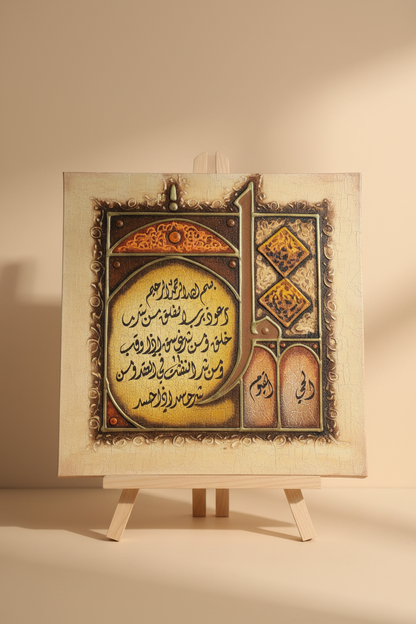 بسم الله الرحمن الرحيم
أعوذ برب الفلق من شر ما
خلق ومن شر غاسق إذا وقب
ومن شر النفثت في العقد ومن
شر حاسد إذا حسد
الحي
القيوم